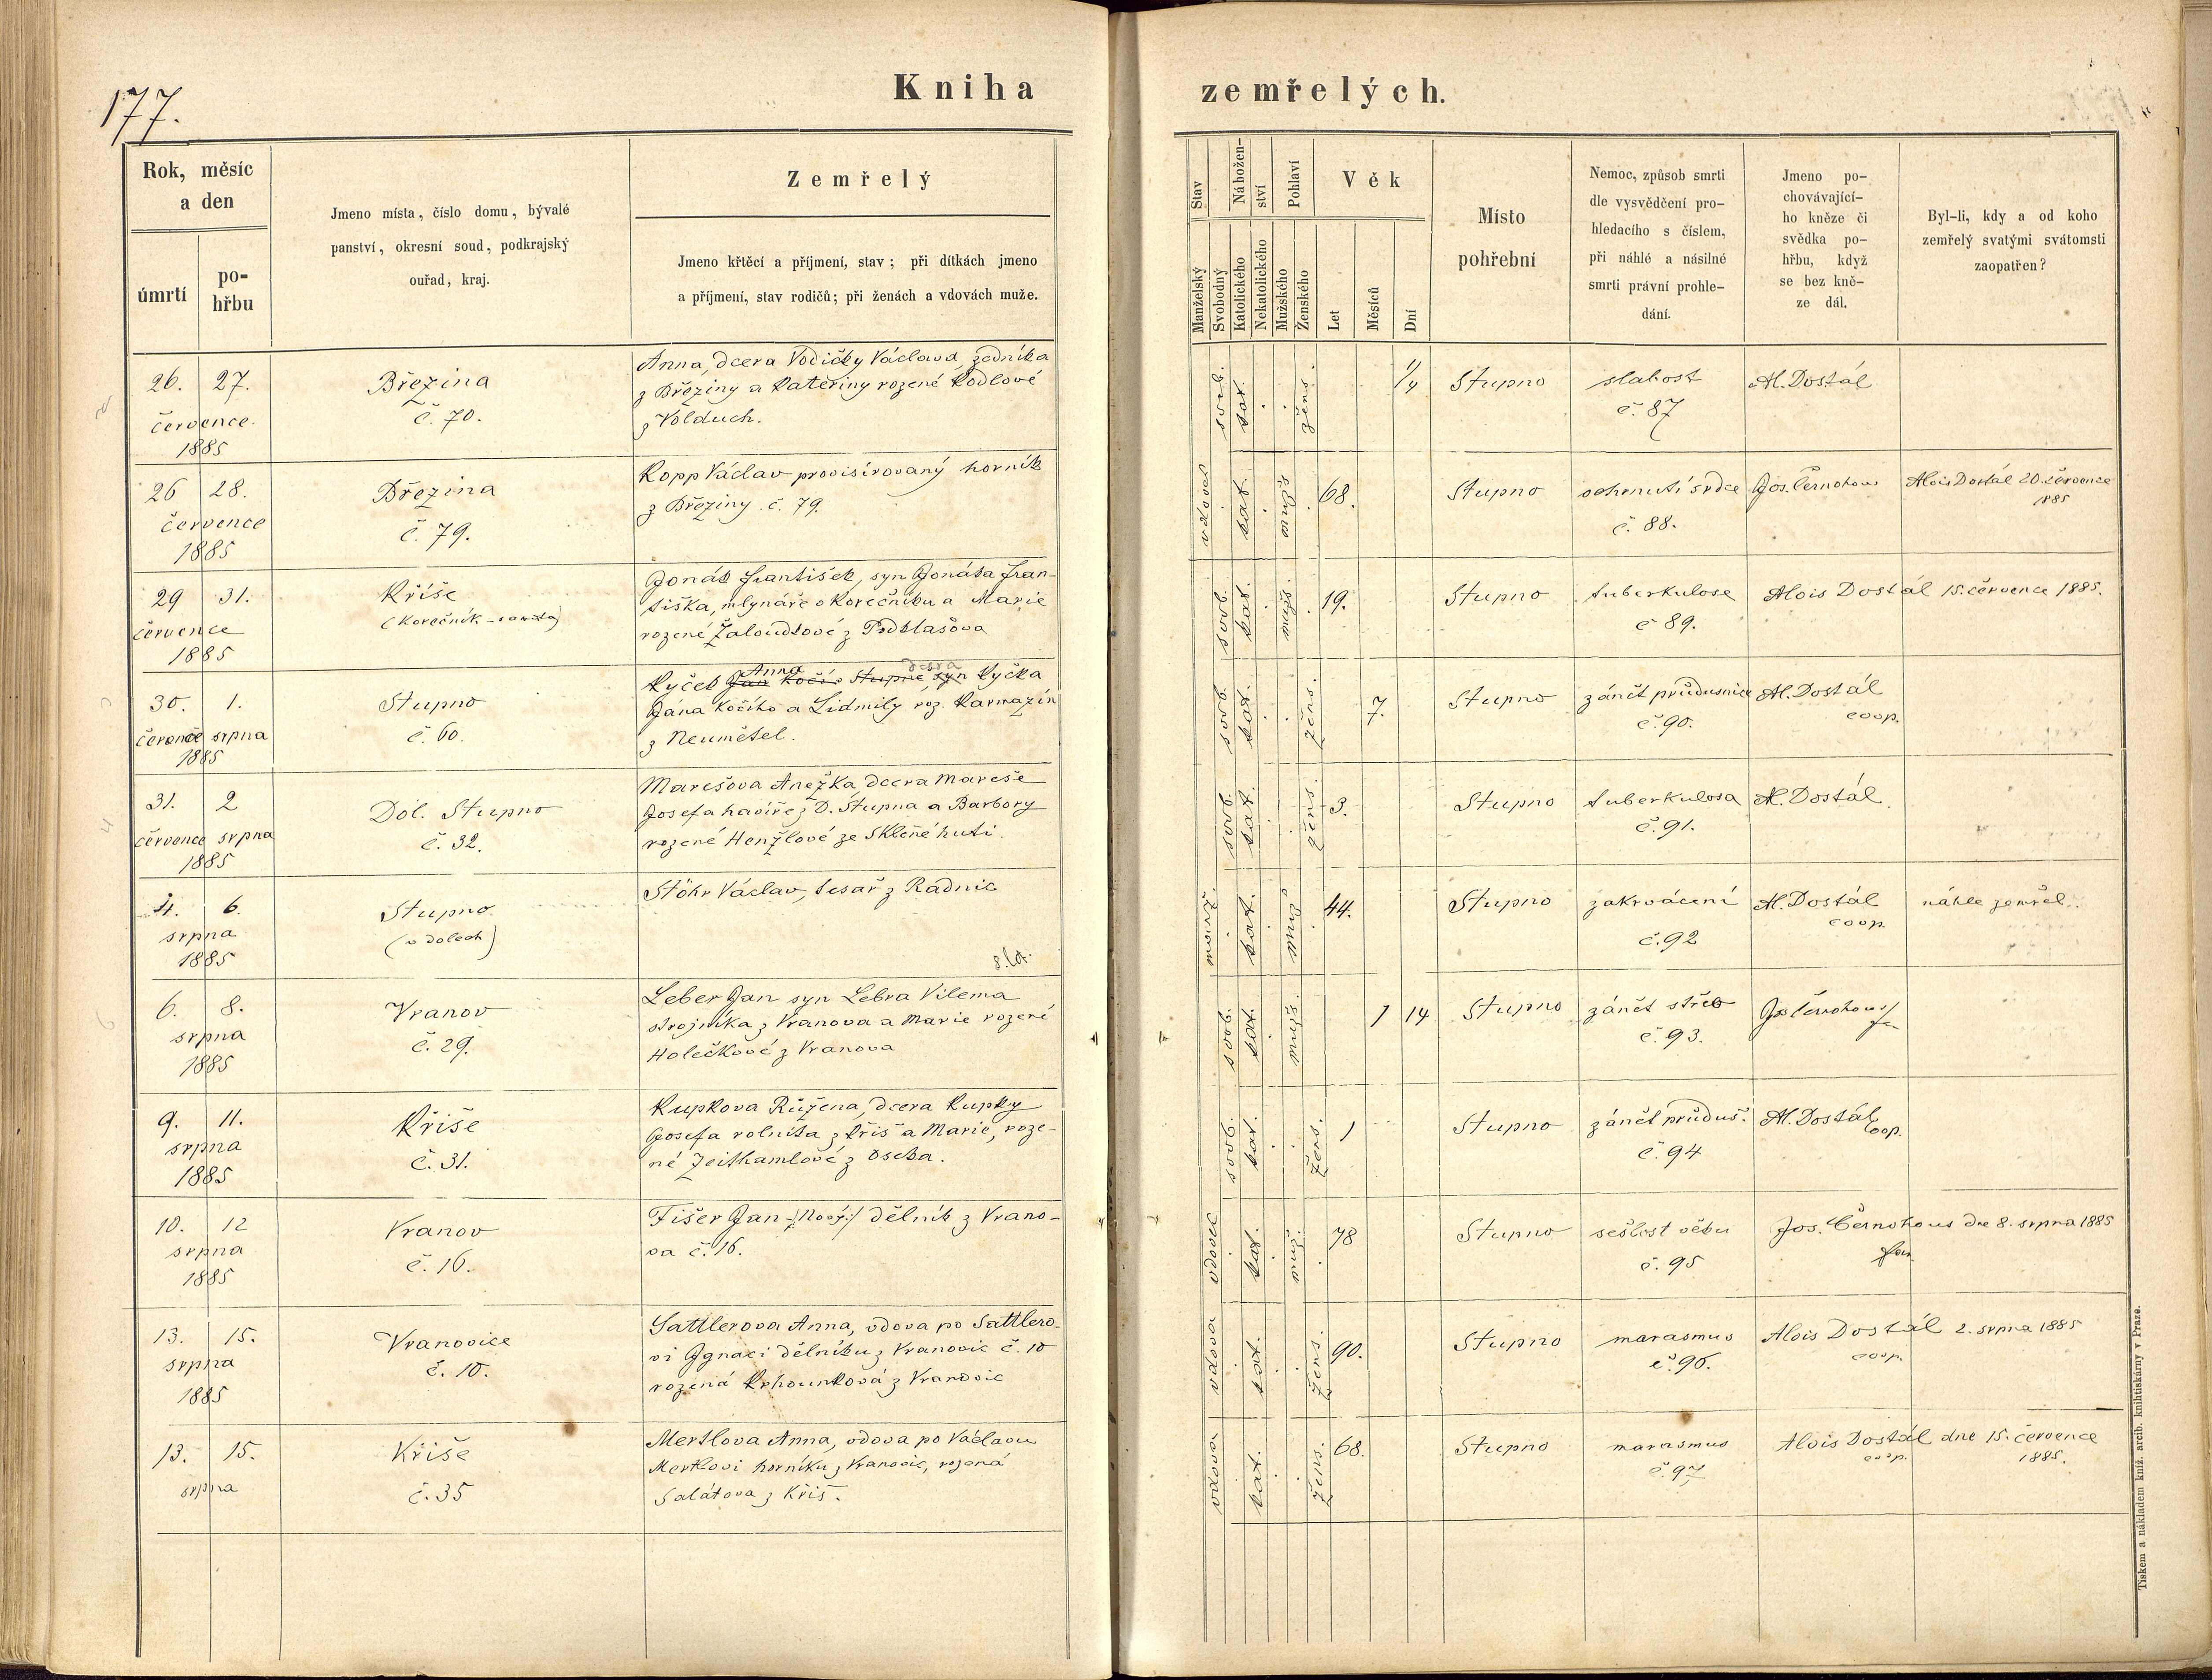 177.
Kniha zemřelých.
Rok, měsíc a den
úmrtí
pohřbu
Jmeno místa, číslo domu, bývalé
panství, okresní soud, podkrajský
ouřad, kraj.
Zemřelý
Jmeno křtěcí a příjmení, stav; při dítkách jmeno
a příjmení, stav rodičů; při ženách a vdovách muže.
Stav
Manželský
Svobodný
Náboženství
Katolického
Nekatolického
Pohlaví
Mužského
Ženského
Věk
Let
Měsíců
Dní
Místo
pohřební
Nemoc, způsob smrti
dle vysvědčení pro-
hledacího s číslem,
při náhlé a násilné
smrti právní prohle-
dání.
Jmeno po-
chovávající-
ho kněze či
svědka po-
hřbu, když
se bez kně-
ze dál.
Byl-li, kdy a od koho
zemřelý svatými svátomsti
zaopatřen?
26. 27.
července.
1885
Březina
č. 70.
Anna, dcera Vodičky Václava, zedníka
z Březiny a Kateřiny rozené Kodlové
z Volduch.
svob. kat. žens. 1/4
Stupno
slabost
č. 87
Al. Dostál
26 28.
července
1885
Březina
č. 79.
Kopp Václav provisírovaný horník
z Březiny č. 79.
vdovec kat. mužs. 68.
Stupno
ochrnutí srdce
č. 88.
Jos. Černohous
Alois Dostál 20. července
1885
29 31.
července
1885
Kříše
(Korečník - samota)
Jonák František, syn Jonáka Fran-
tiška, mlynáře v Korečníku a Marie
rozené Žaloudkové z Podklašova
svob. kat. mužs. 19.
Stupno
tuberkulose
č 89.
Alois Dostál 15. července 1885.
30. 1.
července srpna
1885
Stupno
č. 60.
Anna dcera
Kyček Jan Kočí Stupně, syn Kyčka
Jána Kočího a Lidmily roz. Karmazín
z Neumětel.
svob. kat. žens. 7.
Stupno
zánět průdusnice
č. 90.
Al. Dostál
coop.
31. 2
července srpna
1885
Dol. Stupno
č. 32.
Marešova Anežka, dcera Mareše
Josefa havíře z D. Stupna a Barbory
rozené Henžlové ze Skléné huti.
svob. kat. žens. 3.
Stupno
tuberkulosa
č. 91.
Al. Dostál.
4. 6.
srpna
1885
Stupno
(v dolech)
Stöhr Václav, tesař z Radnic
manž. kat. muž 44.
Stupno
zakrvácení
č. 92
Al. Dostál
coop.
náhle zemřel.
6. 8.
srpna
1885
Vranov
č. 29.
Leber Jan syn Lebra Vilema
strojníka z Vranova a Marie rozené
Holečkové z Vranova
svob. kat. mužs. 1 14
Stupno
zánět střeb
č. 93.
Jos Černohous
9. 11.
srpna
1885
Kříše
č. 31.
Kupkova Růžena, dcera Kupky
Josefa rolníka z Kříš a Marie, roze-
né Zeithamlové z Oseka.
svob. kat. žens. 1
Stupno
zánět průduš.
č. 94
Al. Dostál
coop.
10. 12
srpna
1885
Vranov
č. 16.
Fišer Jan dělník z Vrano-
va č. 16.
vdovec kat. muž. 78
Stupno
sešlost věku
č. 95
Jos. Černohous dne 8. srpna 1885
far.
13. 15.
srpna
1885
Vranovice
č. 10.
Sattlerova Anna, vdova po Sattlero-
vi Ignaci dělníku z Vranovic č. 10
rozená Krhounková z Vranovic
vdova kat. žens. 90.
Stupno
marasmus
č. 96.
Alois Dostál 2. srpna 1885
coop.
13. 15.
srpna
Kříše
č. 35
Mertlova Anna, vdova po Václavu
Mertlovi horníku z Vranovic, rozená
Salátova z Kříš.
vdova kat. žens. 68.
Stupno
marasmus
č. 97
Alois Dostál dne 15. července
coop. 1885.
Tiskem a nákladem kníž. arcib. knihtiskárny v Praze.